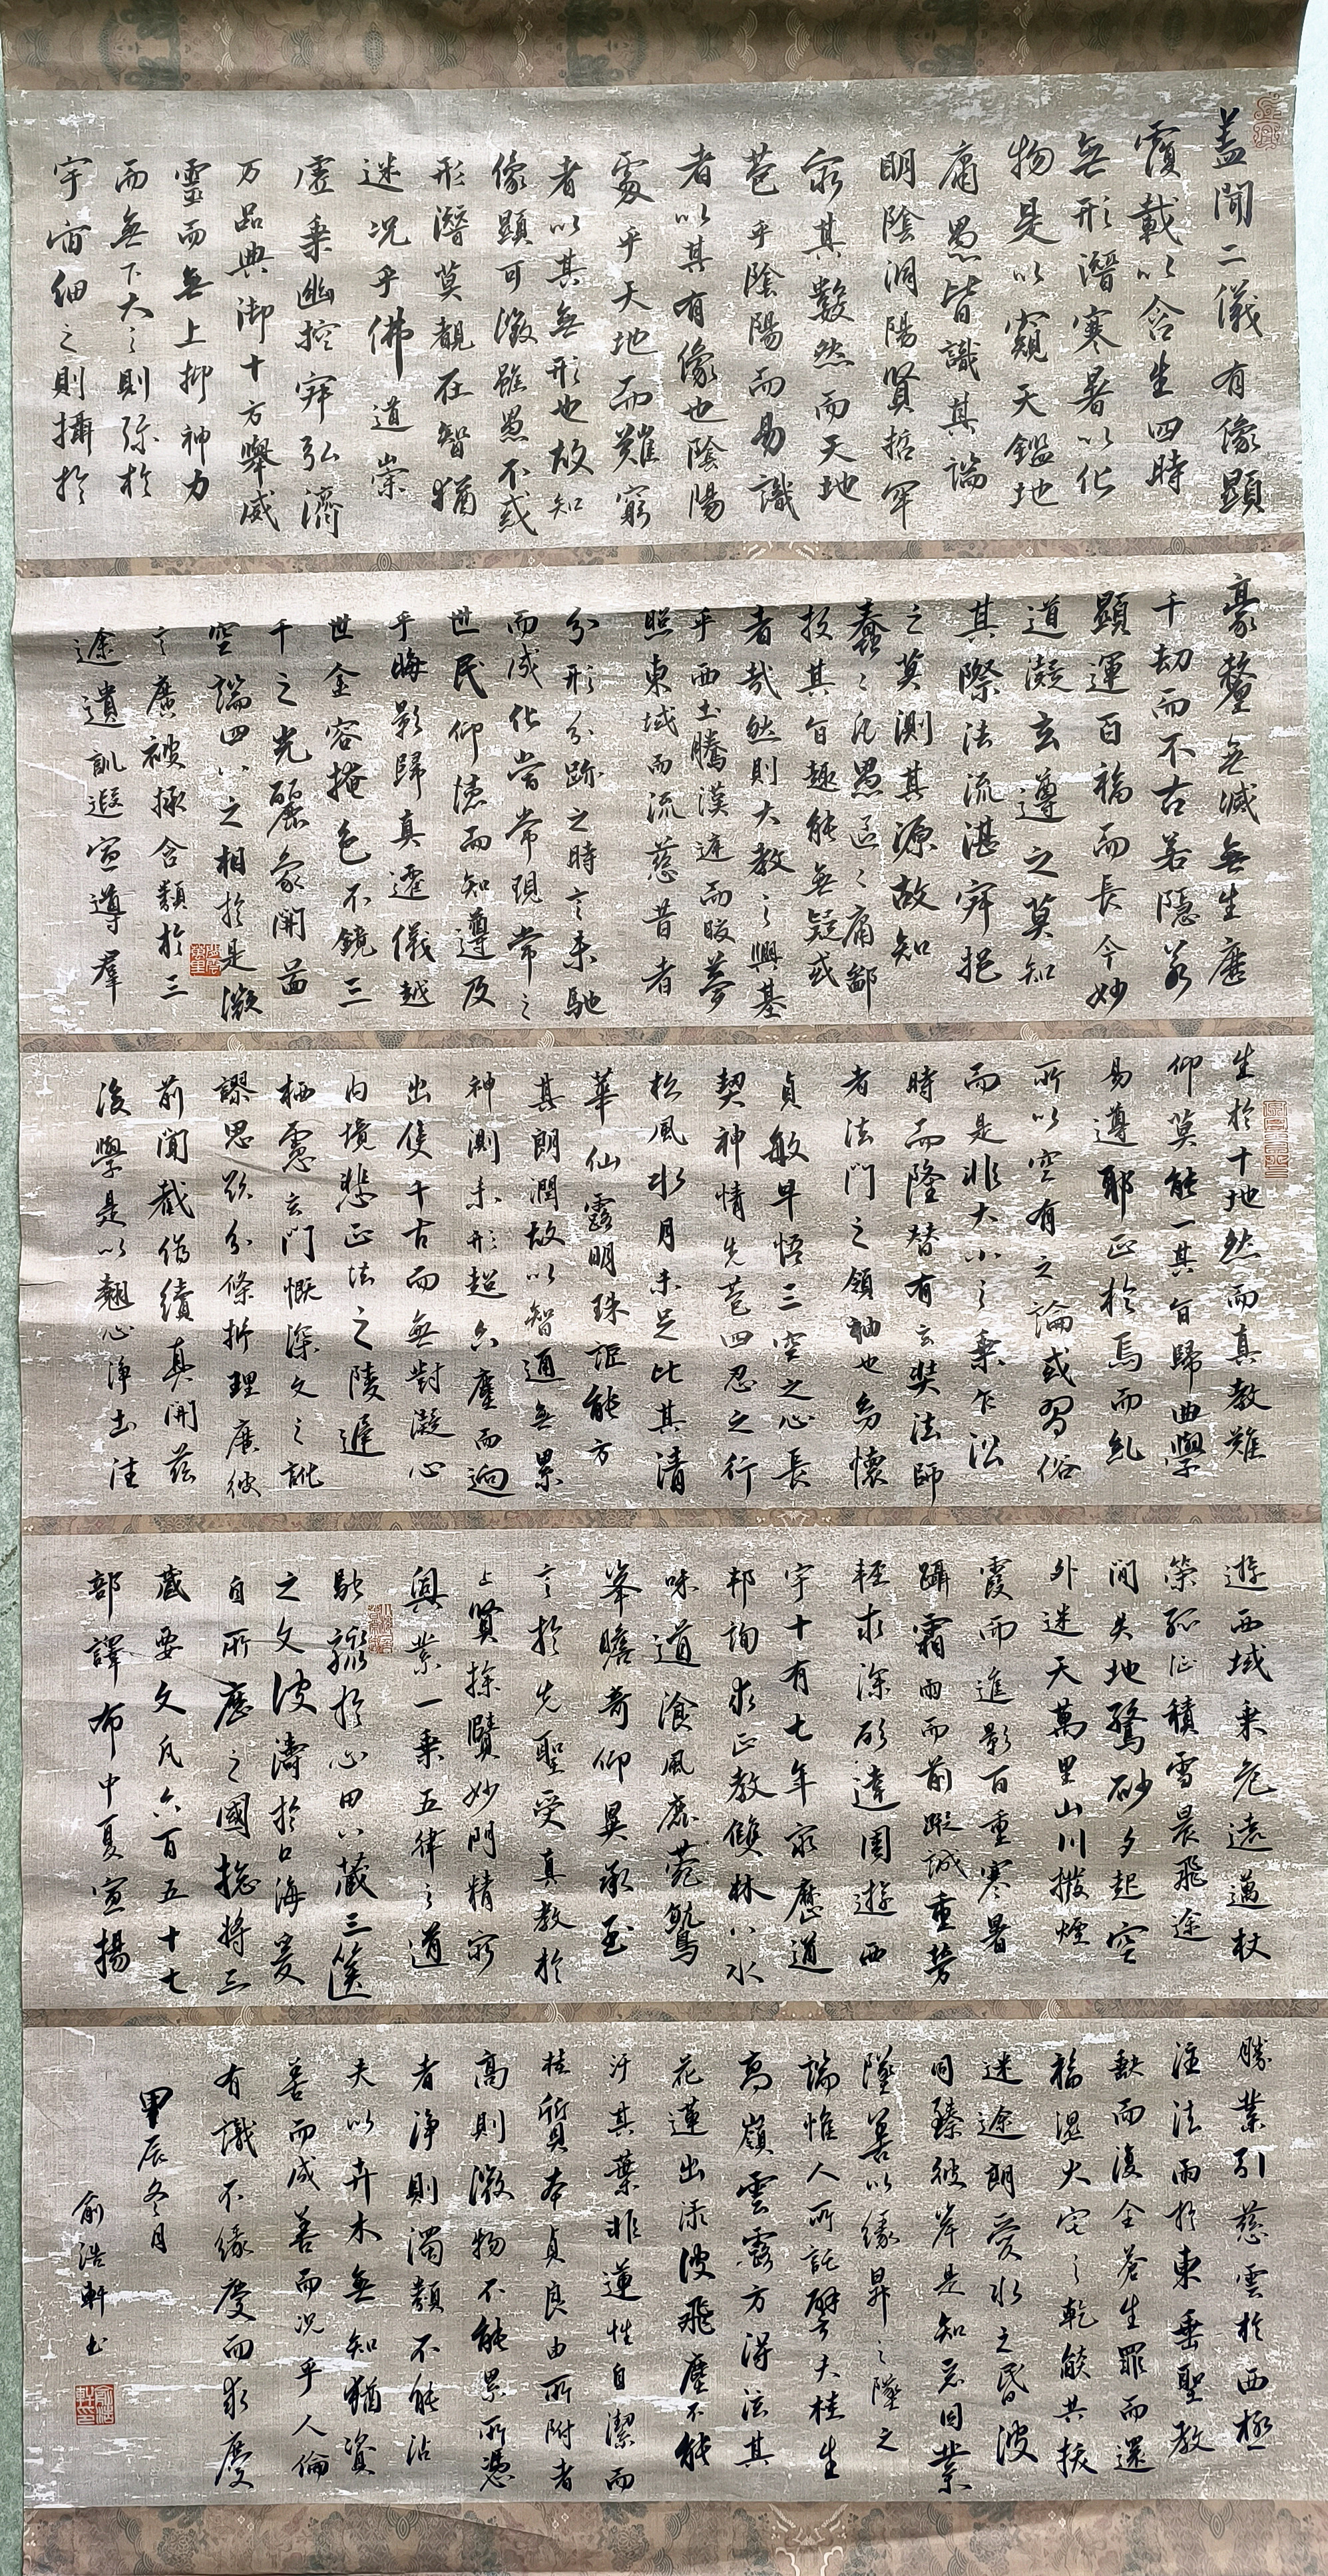 盖聞二儀有像顯
覆載以含生四時
無形潛寒暑以化
物是以窺天鑑地
庸愚皆識其端
明陰洞陽賢哲罕
窮其數然而天地
苞乎陰陽而易識
者以其有像也陰陽
處乎天地而難窮
者以其無形也故知
像顯可徵雖愚不惑
形潛莫覩在智猶
迷况乎佛道崇
虛乘幽控寂弘濟
万品典御十方舉威
靈而無上抑神力
而無下大之則弥於
宇宙細之則攝於
豪釐無滅無生歷
千劫而不古若隱若
顯運百福而長今妙
道凝玄遵之莫知
其際法流湛寂挹
之莫測其源故知
蠢〻凡愚區〻庸鄙
投其旨趣能無疑惑
者哉然則大教之興基
乎西土騰漢庭而皎夢
照東域而流慈昔者
分形分跡之時言未馳
而成化當常現常之
世民仰德而知遵及
乎晦影歸真遷儀越
世金容掩色不鏡三
千之光麗象開圖
空端四八之相於是微
言廣被拯含類於三
途遺訓遐宣導羣
生於十地然而真教難
仰莫能一其旨歸曲學
易遵耶正於焉而糺
所以空有之論或習俗
而是非大小之乘乍沿
時而隆替有玄奘法師
者法門之領袖也幼懷
貞敏早悟三空之心長
契神情先苞四忍之行
松風水月未足比其清
華仙露明珠詎能方
其朗潤故以智通無累
神測未形超六塵而迥
出隻千古而無對凝心
内境悲正法之陵遲
栖慮玄門慨深文之訛
謬思欲分條析理廣彼
前聞截偽續真開茲
後學是以翹心淨土往
遊西域乘危遠邁杖
策孤征積雪晨飛途
間失地驚砂夕起空
外迷天萬里山川撥煙
霞而進影百重寒暑
躡霜雨而前蹤誠重勞
輕求深願達周遊西
宇十有七年窮歷道
邦詢求正教雙林八水
味道飡風鹿菀鷲
峯瞻奇仰異承至
言於先聖受真教於
上賢探賾妙門精窮
奧業一乘五律之道
馳驟於心田八藏三篋
之文波濤於口海爰
自所歷之國摠將三
藏要文凡六百五十七
部譯布中夏宣揚
勝業引慈雲於西極
注法雨於東垂聖教
缺而復全蒼生罪而還
福濕火宅之乾燄共拔
迷途朗愛水之昏波
同臻彼岸是知惡因業
墜善以緣昇〻墜之
端惟人所託譬夫桂生
高嶺雲露方得泫其
花蓮出淥波飛塵不能
汙其葉非蓮性自潔而
桂質本貞良由所附者
高則微物不能累所憑
者淨則濁類不能沾
夫以卉木無知猶資
善而成善而況乎人倫
有識不緣慶而求慶
甲辰冬月
俞浩軒書
俞浩軒印